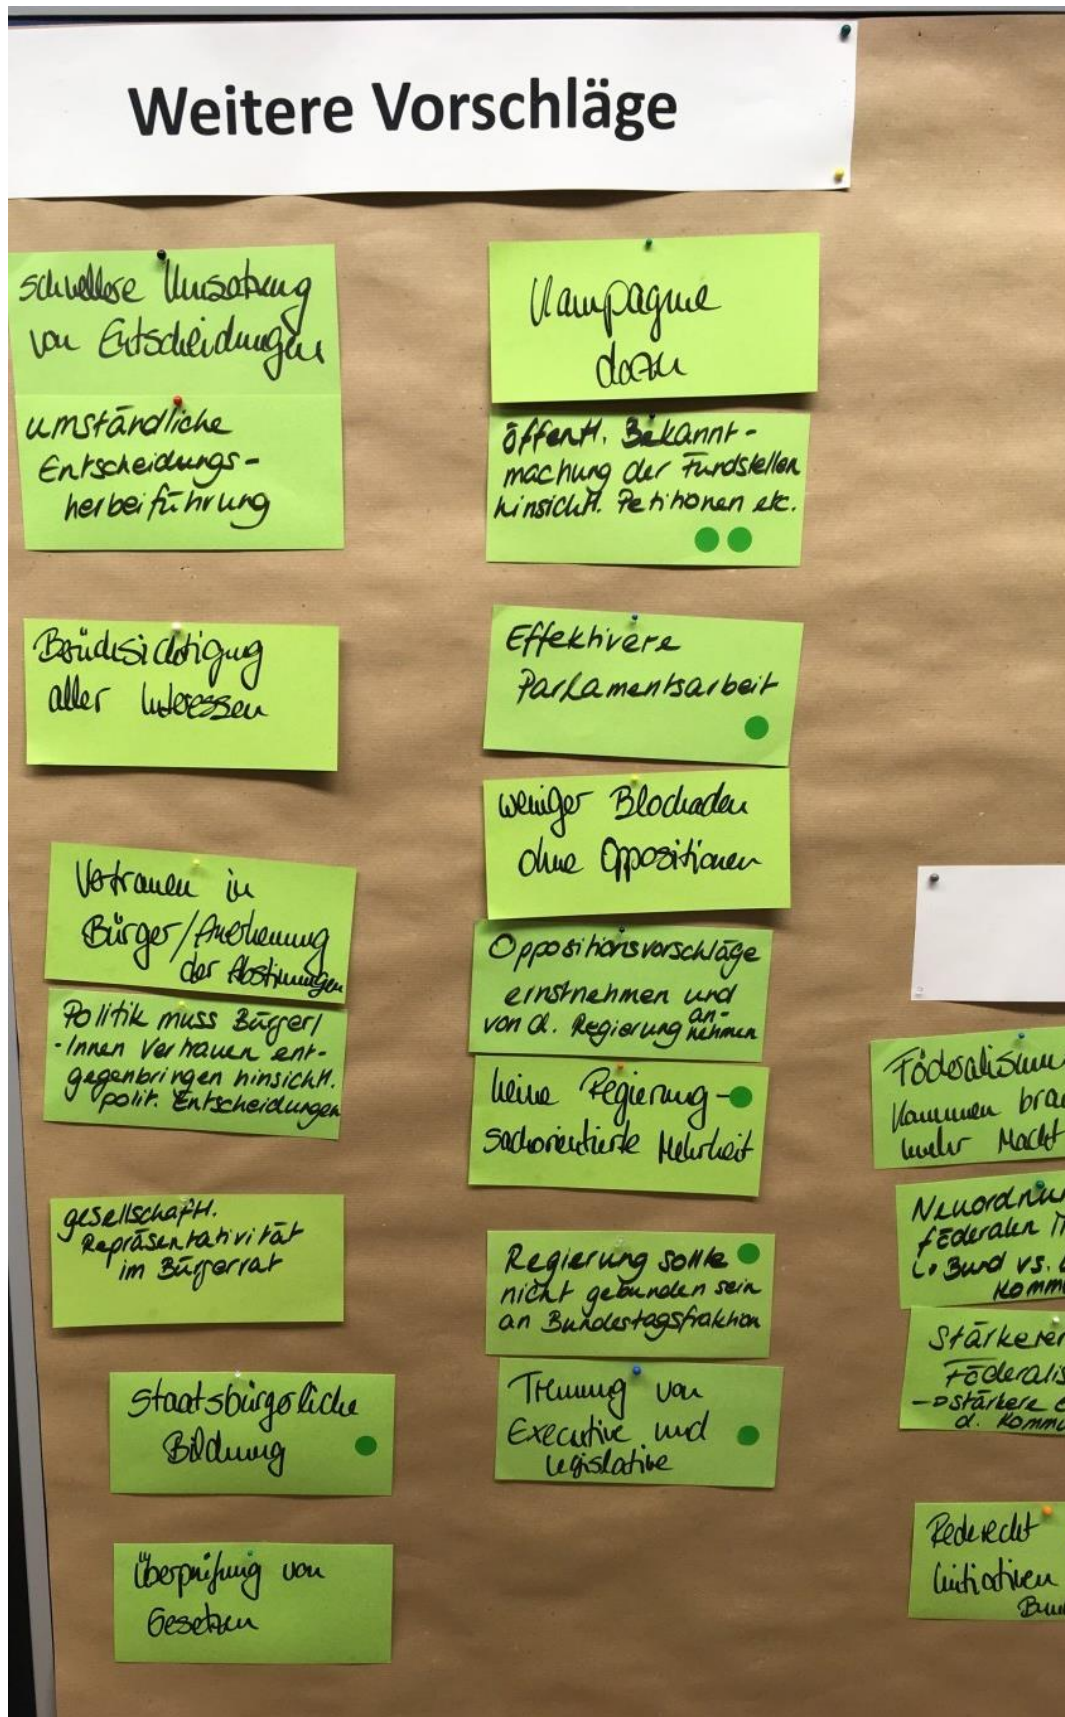 Weitere Vorschläge
schnellere Umsetzung
von Entscheidungen
umständliche
Entscheidungs-
herbeiführung
Berücksichtigung
aller Interessen
Vertrauen in
Bürger/Anerkennung
der Abstimmungen
Politik muss Bürger/
-Innen Vertrauen ent-
gegenbringen hinsichtl.
polit. Entscheidungen
gesellschaftl.
Repräsentativität
im Bürgerrat
Staatsbürgerliche
Bildung
Überprüfung von
Gesetzen
Kampagne
dazu
öffentl. Bekannt-
machung der Fundstellen
hinsichtl. Petitionen etc.
Effektivere
Parlamentsarbeit
weniger Blockaden
ohne Oppositionen
Oppositionsvorschläge
ernstnehmen und
von d. Regierung an-
nehmen
keine Regierung -
sachorientierte Mehrheit
Regierung sollte
nicht gebunden sein
an Bundestagsfraktion
Trennung von
Executive und
Legislative
Föderalismu
Kommunen brau
mehr Macht
Neuordnun
föderalen
Bund vs.
Kommu
Stärkerer
Föderalis
stärkere
d. Kommu
Rederecht
Initiativen
Bun